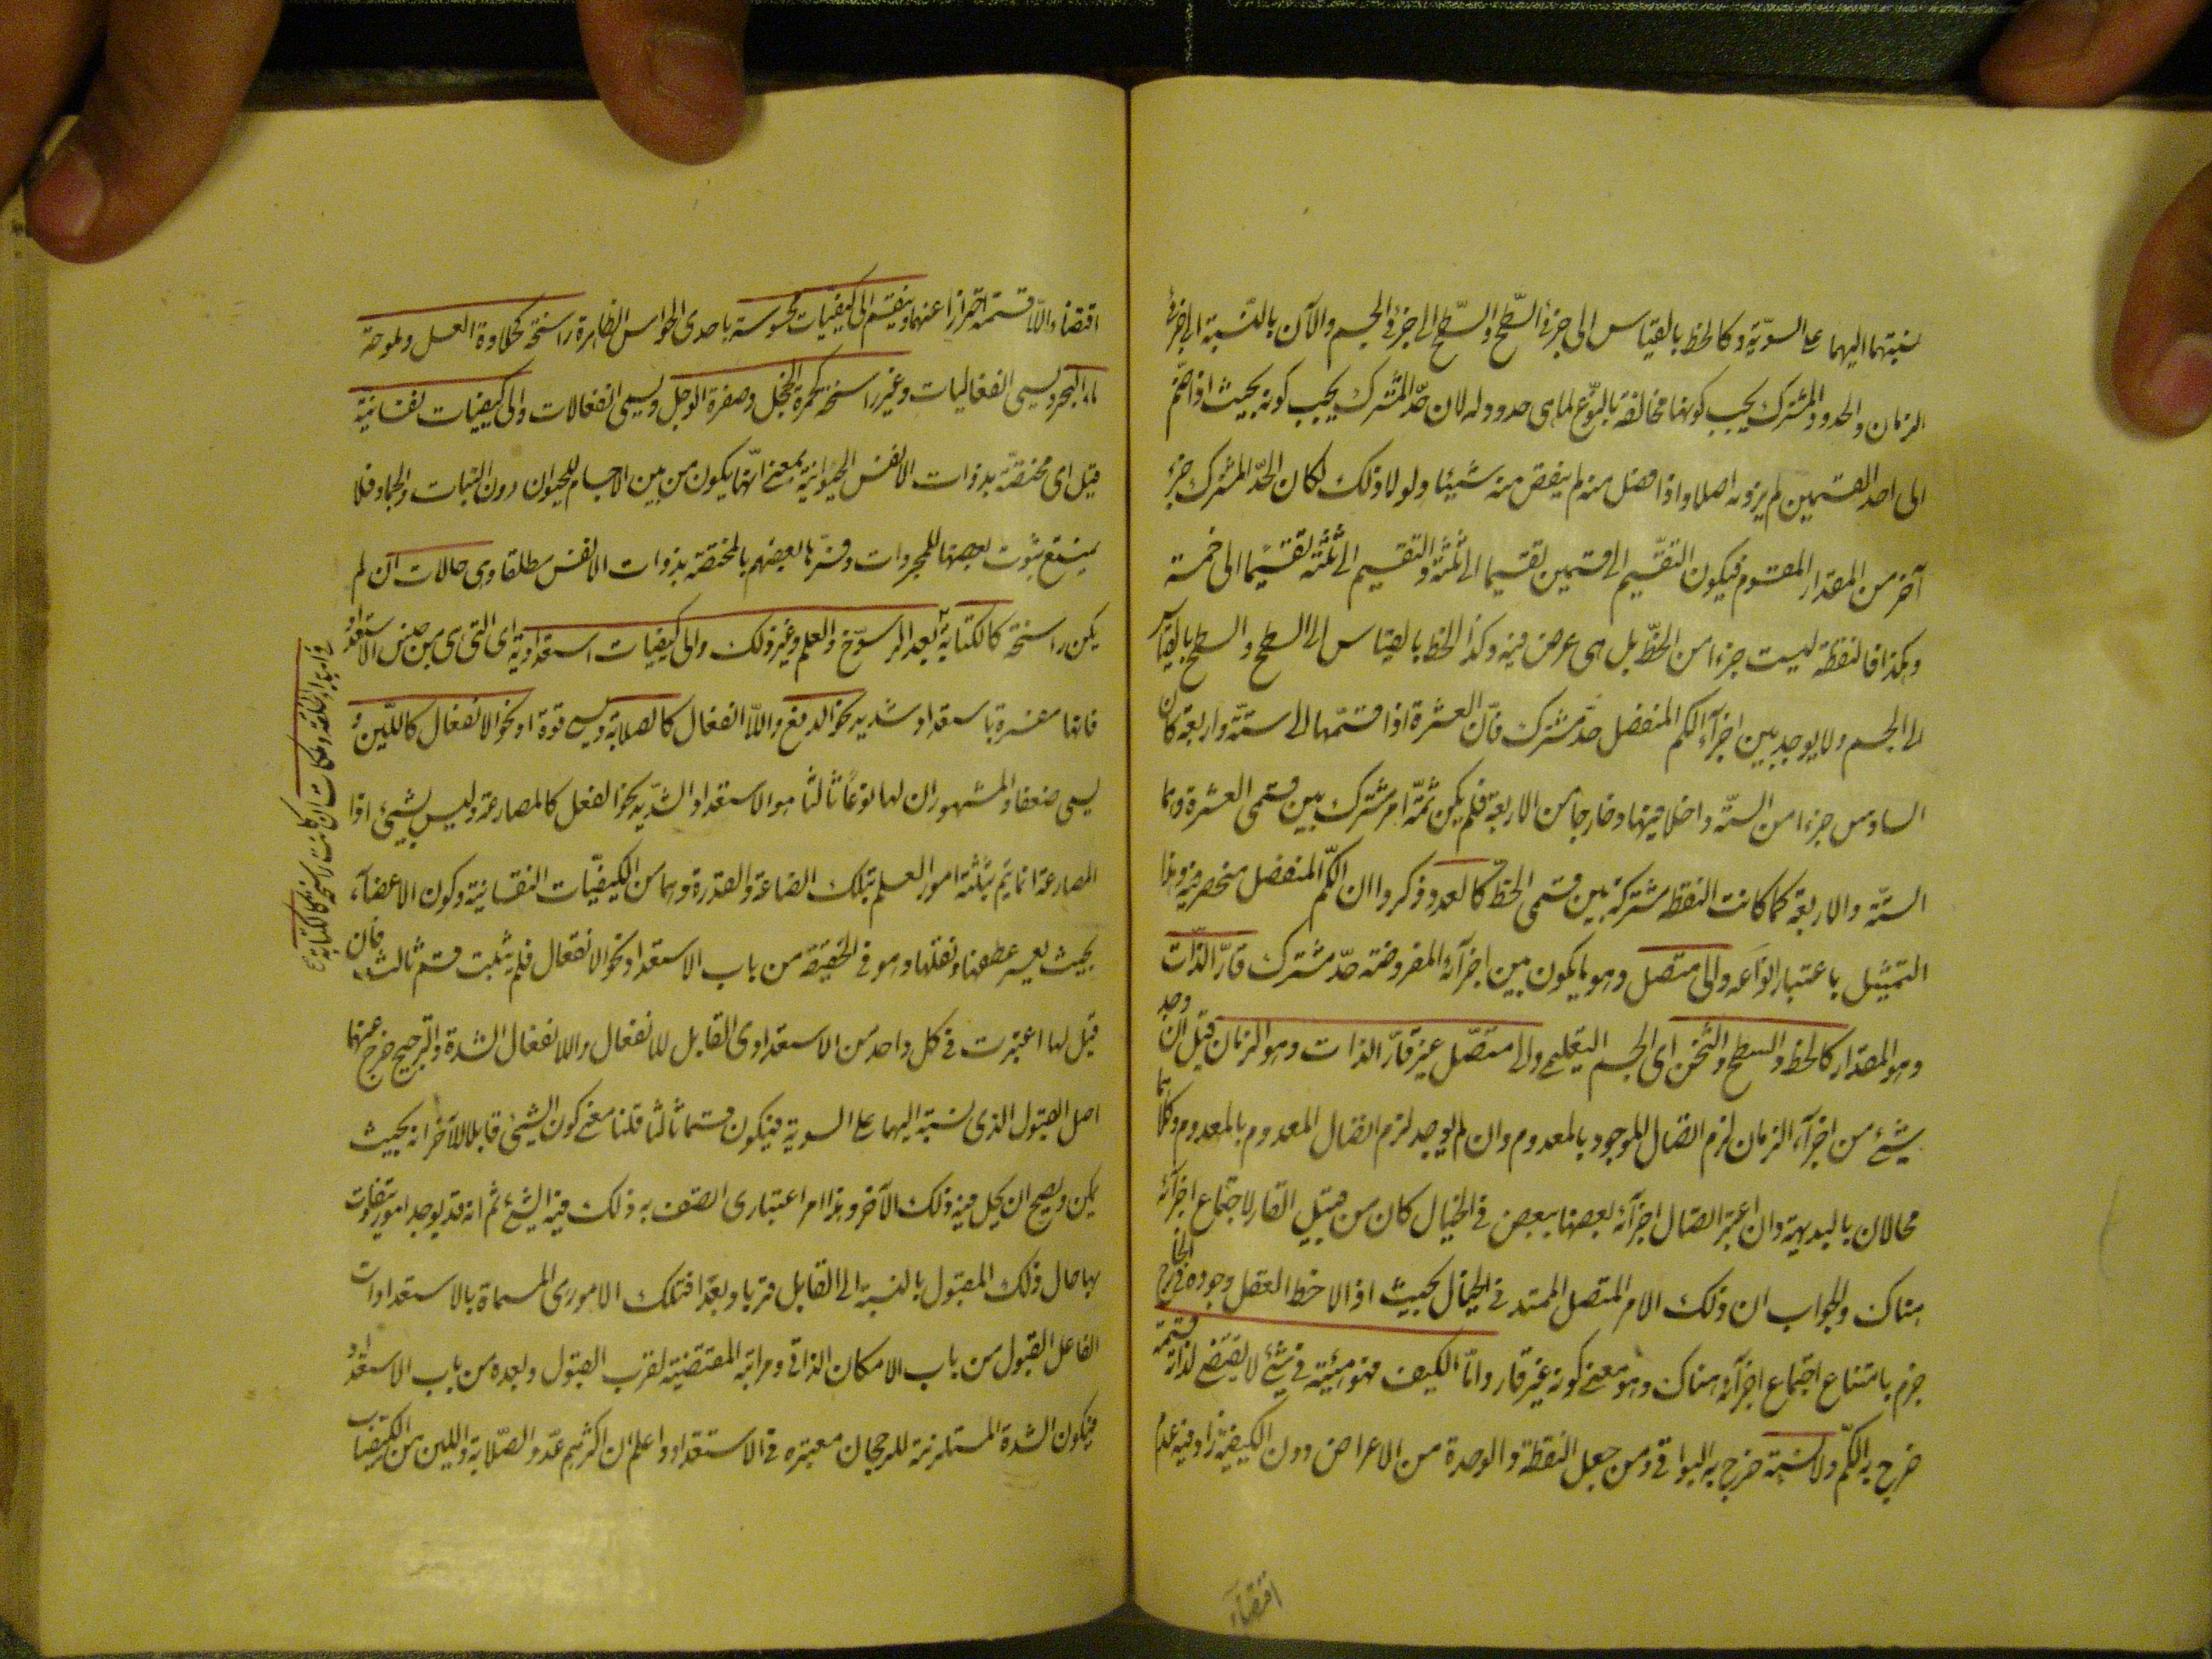 نسبتهما اليهما على السوية وكالخط بالقياس الى جزئى السطح والسطح الى جزئى الجسم والآن بالنسبة الى جزئى
الزمان والحدود المشترك يجب كونها مخالفة بالنوع لما هى حدود له لان حد المشترك يجب كونه بحيث اذا ضم
الى احد القسمين لم يزد به اصلا واذا فصل منه لم ينقص منه شيئا ولولا ذلك لكان الحد المشترك جزء
آخر من المقدار المقسوم فيكون التقسيم الى قسمين تقسيما الى ثلثة والتقسيم الى ثلثة تقسيما الى خمسة
وهكذا فالنقطة ليست جزءا من الخط بل هى عرض فيه وكذا الخط بالقياس الى السطح والسطح بالقياس
الى الجسم ولا يوجد بين اجزآء الكم المنفصل حد مشترك فان العشرة اذا قسمتها الى ستة واربعة كان
السادس جزءا من الستة داخلا فيها وخارجا من الاربعة فلم يكن ثمة امر مشترك بين قسمى العشرة وهما
الستة والاربعة كما كانت النقطة مشتركة بين قسمى الخط كالعدد وذكروا ان الكم المنفصل منحصر فيه وهذا
التمثيل باعتبار انواعه والى متصل وهو ما يكون بين اجزآئه المفروضة حد مشترك قار الذات
وهو المقدار كالخط والسطح والثخن اى الجسم التعليمى والى متصل غير قار الذات وهو الزمان قيل ان وجد
شيئ من اجزآء الزمان لزم اتصال الموجود بالمعدوم وان لم يوجد لزم اتصال المعدوم بالمعدوم وكلاهما
محالان بالبديهة وان اعتبر اتصال اجزآئه بعضها ببعض فى الخيال كان من قبيل القار لاجتماع اجزآئه
هناك والجواب ان ذلك الامر المتصل الممتد فى الخيال بحيث اذا لاحظ العقل وجوده فى الخارج
جزم بامتناع اجتماع اجزآئه هناك وهو معنى كونه غير قار واما الكيف فهو هيئة فى شيئ لا يقتضى لذاته قسمة
خرج به الكم ولا نسبة خرج به البواقى ومن جعل النقطة والوحدة من الاعراض دون الكيفية زاد فيه عدم
اقتضاء
اقتضاء اللا قسمة احترازا عنهما وينقسم الى كيفيات محسوسة باحدى الحواس الظاهرة راسخة كحلاوة العسل وملوحة
ماء البحر ويسمى انفعاليات وغير راسخة كحمرة الخجل وصفرة الوجل ويسمى انفعالات والى كيفيات نفسانية
قيل اى مختصة بذوات الانفس الحيوانية بمعنى انها يكون من بين الاجسام للحيوان دون النبات والجماد فلا
يمتنع ثبوت بعضها للمجردات وفسرها بعضهم بالمختصة بذوات الانفس مطلقا وهى حالات ان لم
يكن راسخة كالكتابة بعد الرسوخ والعلم وغير ذلك والى كيفيات استعدادية اى التى هى من جنس الاستعداد
فانها مفسرة باستعداد شديد نحو الدفع واللا انفعال كالصلابة ويسمى قوة او نحو الانفعال كاللين و
يسمى ضعفا والمشهور ان لها نوعا ثالثا هو الاستعداد الشديد نحو الفعل كالمصارعة وليس بشيئ اذا
المصارعة انما يتم بثلثة امور العلم بتلك الصناعة والقدرة وهما من الكيفيات النفسانية وكون الاعضآء
بحيث يعسر عطفها ونقلها وهو فى الحقيقة من باب الاستعداد نحو الانفعال فلم يثبت قسم ثالث فان
قيل لما اعتبرت فى كل واحد من الاستعدادى القابل للانفعال واللا نفعال الشدة والترجيح خرج عنهما
اصل القبول الذى نسبة اليهما على السوية فيكون قسما ثالثا قلنا معنى كون الشيئ قابلا للآخر انه بحيث
يمكن ويصح ان يحل فيه ذلك الآخر وهذا امر اعتبارى اتصف به ذلك فيه الشيئ ثم انه قد يوجد امور يتفاوت
بها حال ذلك المقبول بالنسبة الى القابل قربا وبعدا فتلك الامور هى المسماة بالاستعدادات
الفاعل القبول من باب الامكان الذاتى ومراتبه المقتضية لقرب القبول وبعده من باب الاستعداد
فيكون الشدة المستلزمة للرجحان معتبرة فى الاستعداد واعلم ان اكثرهم عدو الصلابة واللين من الكيفيات
وملكات ان كانت راسخة كالكتابة